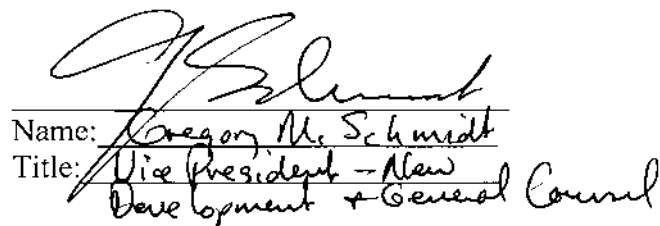 Name: Gregory M. Schmidt
Title: Vice President - New
Development + General Counsel